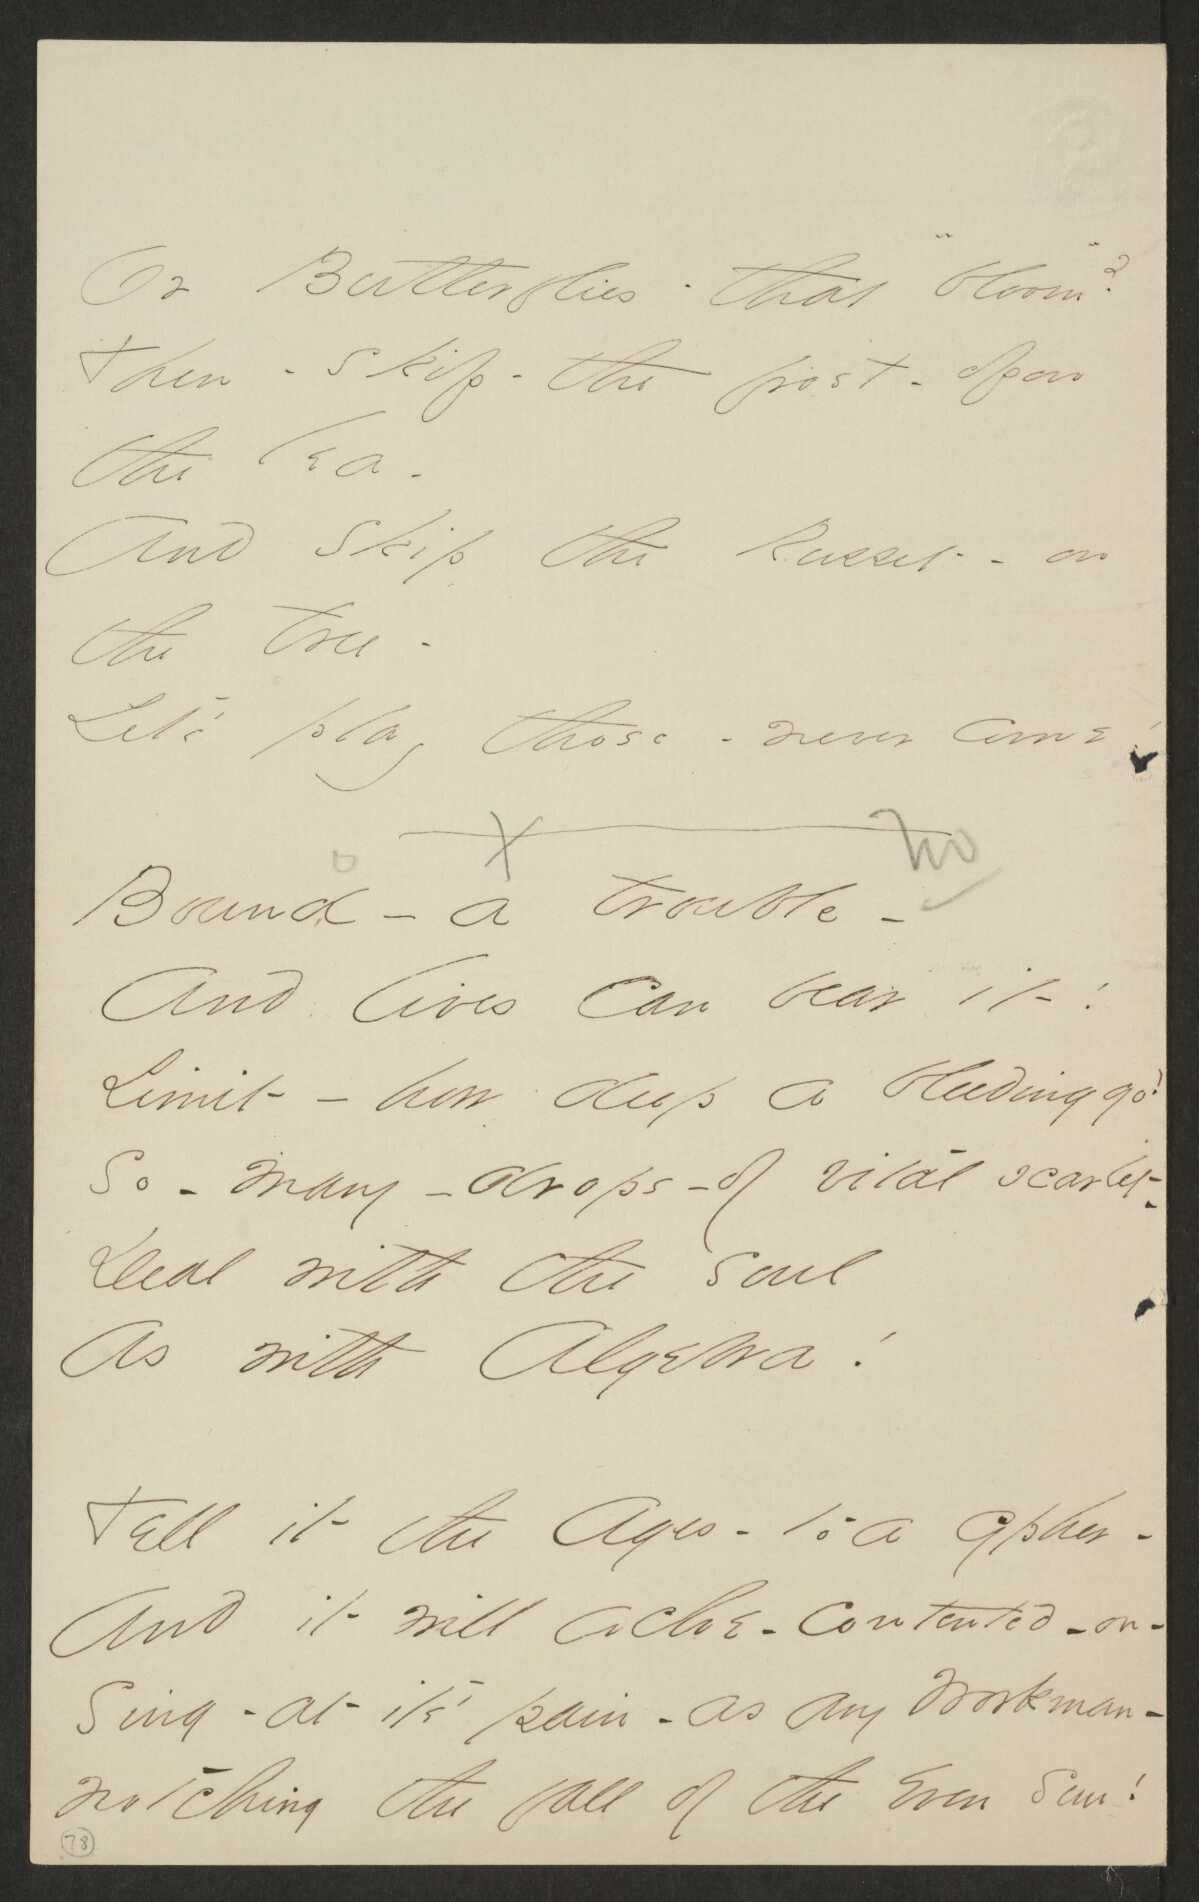 Or Butterflies - that "bloom"?
Then - skip - the frost - upon
the Lea -
And skip the Russet - on
the tree -
Let's play those - never come!
X no
Bound - a trouble -
And lives can bear it - !
Limit - how deep a bleeding go!
So - many - drops - of vital scarlet -
Deal with the Soul
As with Algebra!
Tell it the Ages - to a cypher -
And it will ache - contented - on -
Sing - at it's pain - as any Workman -
Notching the fall of the Even Sun!
78